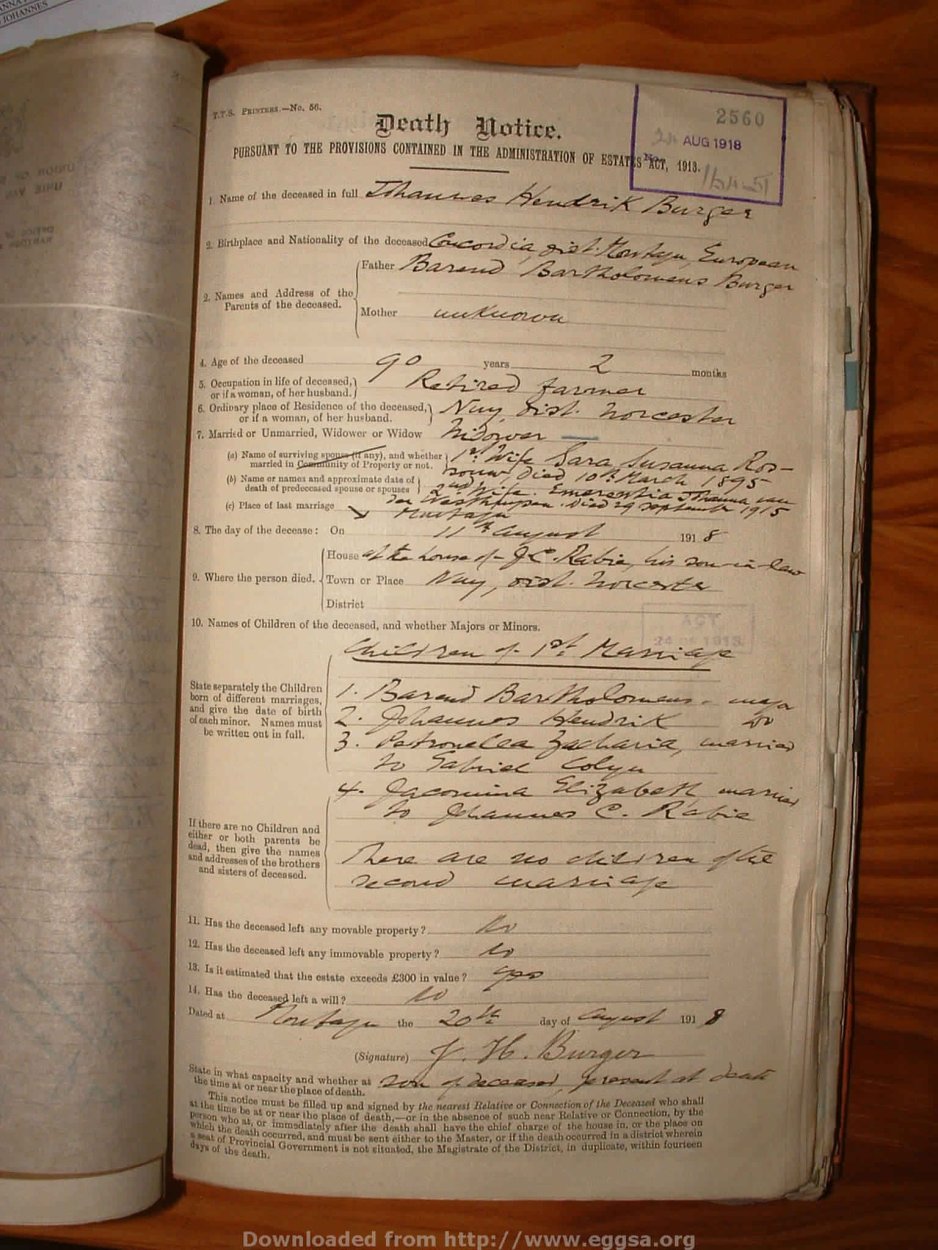 JOHANNES
T.T.S. PRINTERS.—No. 56.
2560
Death Notice.
24 AUG 1918
PURSUANT TO THE PROVISIONS CONTAINED IN THE ADMINISTRATION OF ESTATES ACT, 1913.
1 Name of the deceased in full Johannes Hendrik Burger
2. Birthplace and Nationality of the deceased Concordia, dist. Montagu, European
Father Barend Bartholomeus Burger
2. Names and Address of the
Parents of the deceased.
Mother unknown
4. Age of the deceased 90 years 2 months
5. Occupation in life of deceased, Retired farmer
or if a woman, of her husband.
6. Ordinary place of Residence of the deceased, Nuy, dist. Worcester
or if a woman, of her husband.
7. Married or Unmarried, Widower or Widow Widower
(a) Name of surviving spouse (if any), and whether 1st Wife Sara Susanna Ros-
married in Community of Property or not. souw Died 10th March 1895
(b) Name or names and approximate date of 2nd Wife. Emerentia Johanna van
death of predeceased spouse or spouses
der Westhuysen. Died 29 September 1915
(c) Place of last marriage Montagu
8. The day of the decease: On 11th August 1918
House at the house of J.C. Rabie, his son-in-law
9. Where the person died. Town or Place Nuy, dist. Worcester
District
10. Names of Children of the deceased, and whether Majors or Minors.
Children of 1st Marriage
State separately the Children
born of different marriages,
and give the date of birth
of each minor. Names must
be written out in full.
1. Barend Bartholomeus - major
2. Johannes Hendrik do
3. Petronella Zacharia, married
to Gabriel Colyn
4. Jacomina Elizabeth married
to Johannes C. Rabie
If there are no Children and
either or both parents be
dead, then give the names
and addresses of the brothers
and sisters of deceased.
There are no children of the
second marriage
11. Has the deceased left any movable property? No
12. Has the deceased left any immovable property? No
13. Is it estimated that the estate exceeds £300 in value? yes
14. Has the deceased left a will? No
Dated at Montagu the 20th day of August 1918
(Signature) J. H. Burger
State in what capacity and whether at son of deceased, present at death
the time at or near the place of death.
This notice must be filled up and signed by the nearest Relative or Connection of the Deceased who shall
at the time be at or near the place of death,—or in the absence of such near Relative or Connection, by the
person who at, or immediately after the death shall have the chief charge of the house in, or the place on
which the death occurred, and must be sent either to the Master, or if the death occurred in a district wherein
a seat of Provincial Government is not situated, the Magistrate of the District, in duplicate, within fourteen
days of the death.
Downloaded from http://www.eggsa.org